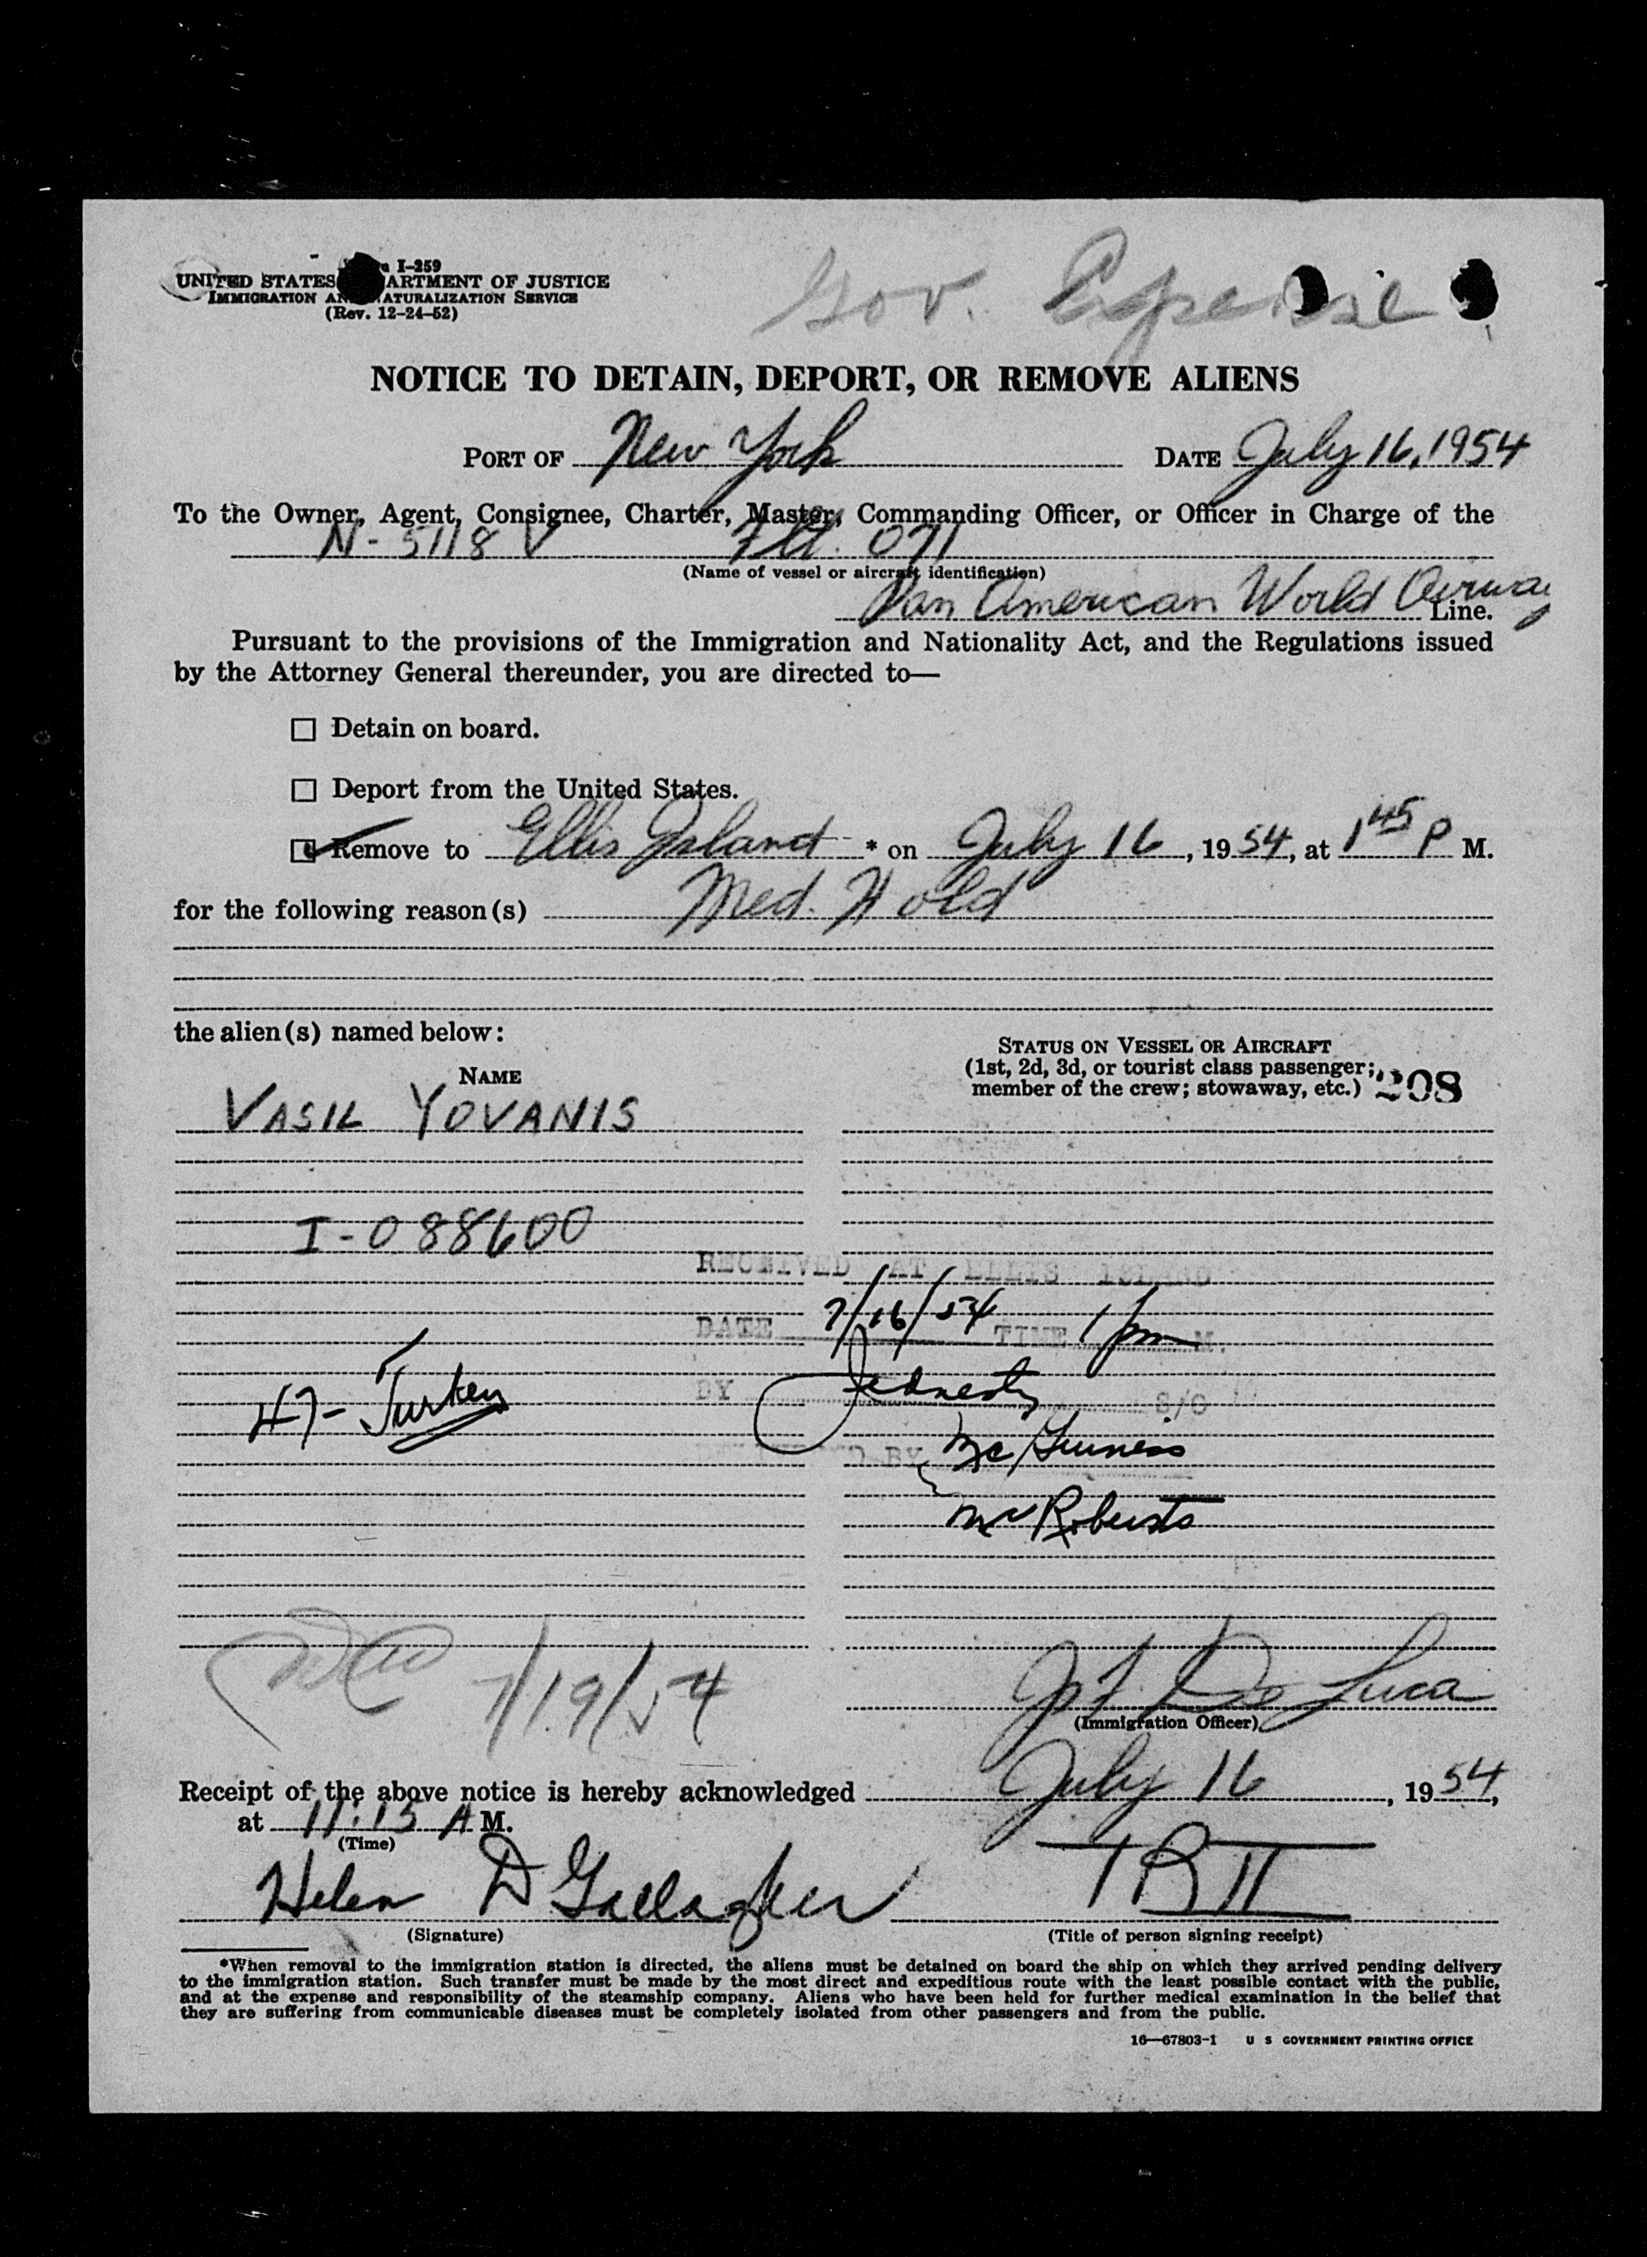 I-259
UNITED STATES DEPARTMENT OF JUSTICE
IMMIGRATION AND NATURALIZATION SERVICE
(Rev. 12-24-52)
Gov. Expense
NOTICE TO DETAIN, DEPORT, OR REMOVE ALIENS
PORT OF New York DATE July 16, 1954
To the Owner, Agent, Consignee, Charter, Master, Commanding Officer, or Officer in Charge of the
N-5118V Flt. 071
(Name of vessel or aircraft identification)
Pan American World Airway Line.
Pursuant to the provisions of the Immigration and Nationality Act, and the Regulations issued
by the Attorney General thereunder, you are directed to—
☐ Detain on board.
☐ Deport from the United States.
☑ Remove to Ellis Island * on July 16, 1954, at 1 45 P M.
for the following reason(s) Med. Hold
the alien(s) named below:
STATUS ON VESSEL OR AIRCRAFT
(1st, 2d, 3d, or tourist class passenger;
member of the crew; stowaway, etc.) 208
NAME
VASIL YOVANIS
I-088600
RECEIVED AT ELLIS ISLAND
DATE 7/16/54 TIME 1 pm M.
BY S/O
47- Turkey
BY McGuiness
McRoberts
7/19/54
De Luca
(Immigration Officer)
Receipt of the above notice is hereby acknowledged July 16, 1954,
at 11:15 A M.
(Time)
Helen D Gallagher
(Signature) (Title of person signing receipt)
*When removal to the immigration station is directed, the aliens must be detained on board the ship on which they arrived pending delivery
to the immigration station. Such transfer must be made by the most direct and expeditious route with the least possible contact with the public,
and at the expense and responsibility of the steamship company. Aliens who have been held for further medical examination in the belief that
they are suffering from communicable diseases must be completely isolated from other passengers and from the public.
16—67803-1 U S GOVERNMENT PRINTING OFFICE